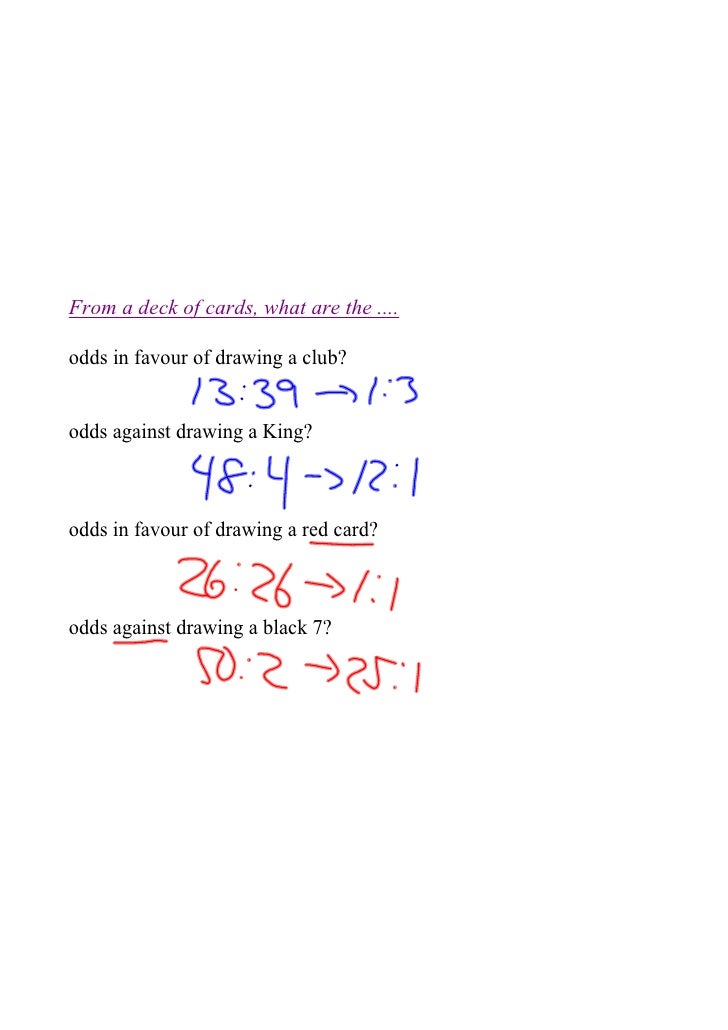 From a deck of cards, what are the ....
odds in favour of drawing a club?
13:39 → 1:3
odds against drawing a King?
48:4 → 12:1
odds in favour of drawing a red card?
26:26 → 1:1
odds against drawing a black 7?
50:2 → 25:1